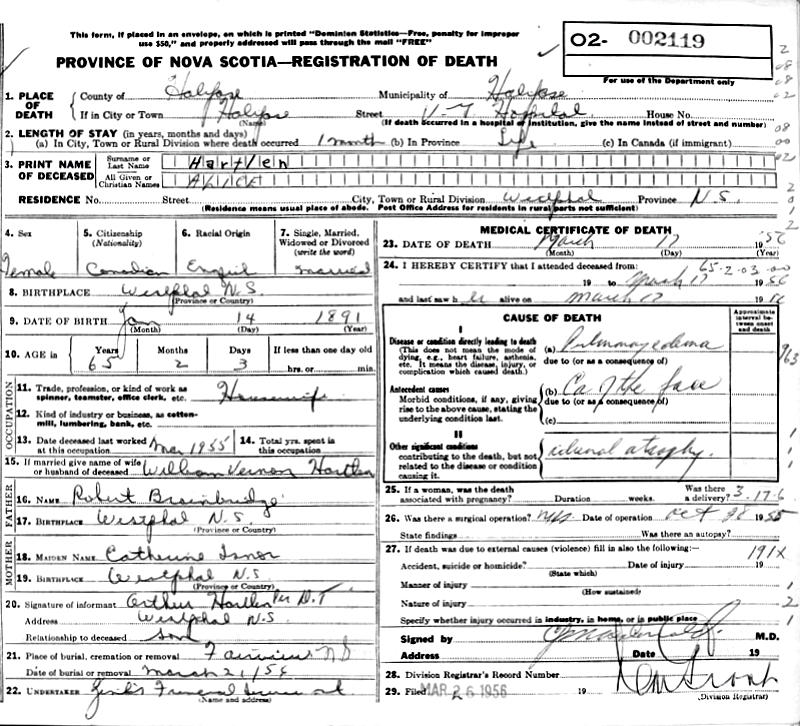 This form, if placed in an envelope, on which is printed "Dominion Statistics—Free, penalty for improper
use $50," and properly addressed will pass through the mail "FREE"
02- 002119
PROVINCE OF NOVA SCOTIA—REGISTRATION OF DEATH
For use of the Department only
1. PLACE OF DEATH County of Halifax Municipality of Halifax
If in City or Town Halifax Street V-G Hospital House No.
(Name) (If death occurred in a hospital or institution, give the name instead of street and number)
2. LENGTH OF STAY (in years, months and days)
(a) In City, Town or Rural Division where death occurred 1 month (b) In Province Life (c) In Canada (if immigrant)
3. PRINT NAME OF DECEASED Surname or Last Name Hartlen
All Given or Christian Names Alice
RESIDENCE No. Street City, Town or Rural Division Westphal Province N.S.
(Residence means usual place of abode. Post Office Address for residents in rural parts not sufficient)
4. Sex Female
5. Citizenship (Nationality) Canadian
6. Racial Origin
7. Single, Married, Widowed or Divorced (write the word) Married
8. BIRTHPLACE Westphal N.S
(Province or Country)
9. DATE OF BIRTH Jan 14 1891
(Month) (Day) (Year)
10. AGE in Years 65 Months 2 Days 3 If less than one day old hrs. or min.
OCCUPATION
11. Trade, profession, or kind of work as spinner, teamster, office clerk, etc. Housewife
12. Kind of industry or business, as cotton-mill, lumbering, bank, etc.
13. Date deceased last worked at this occupation Mar 1955 14. Total yrs. spent in this occupation
15. If married give name of wife or husband of deceased William Vernon Hartlen
FATHER
16. NAME Robert Brainbridge
17. BIRTHPLACE Westphal N.S.
(Province or Country)
MOTHER
18. MAIDEN NAME Catherine Isnor
19. BIRTHPLACE Westphal N.S.
(Province or Country)
20. Signature of informant Arthur Hartlen per D.T
Address Westphal N.S
Relationship to deceased son
21. Place of burial, cremation or removal Fairview N S
Date of burial or removal March 21/56
22. UNDERTAKER Funeral Service
(Name and address)
MEDICAL CERTIFICATE OF DEATH
23. DATE OF DEATH March 17 1956
(Month) (Day) (Year)
24. I HEREBY CERTIFY that I attended deceased from: 65-2-03-00
19 to March 17 1956
and last saw her alive on March 17 1956
CAUSE OF DEATH
Approximate interval between onset and death
I
Disease or condition directly leading to death
(This does not mean the mode of dying, e.g., heart failure, asthenia, etc. It means the disease, injury, or complication which caused death.)
(a) Pulmonary edema
due to (or as a consequence of)
963
Antecedent causes
Morbid conditions, if any, giving rise to the above cause, stating the underlying condition last.
(b) Ca of the face
due to (or as a consequence of)
(c)
II
Other significant conditions
contributing to the death, but not related to the disease or condition causing it.
atrophy.
25. If a woman, was the death associated with pregnancy? Duration weeks. Was there a delivery? 3-17-6
26. Was there a surgical operation? yes Date of operation Oct 28 1955
State findings Was there an autopsy?
27. If death was due to external causes (violence) fill in also the following:— 191X
Accident, suicide or homicide? Date of injury 19
(State which)
Manner of injury
(How sustained)
Nature of injury
Specify whether injury occurred in industry, in home, or in public place
Signed by M.D.
Address Date 19
28. Division Registrar's Record Number
29. Filed MAR 26 1956 19
(Division Registrar)